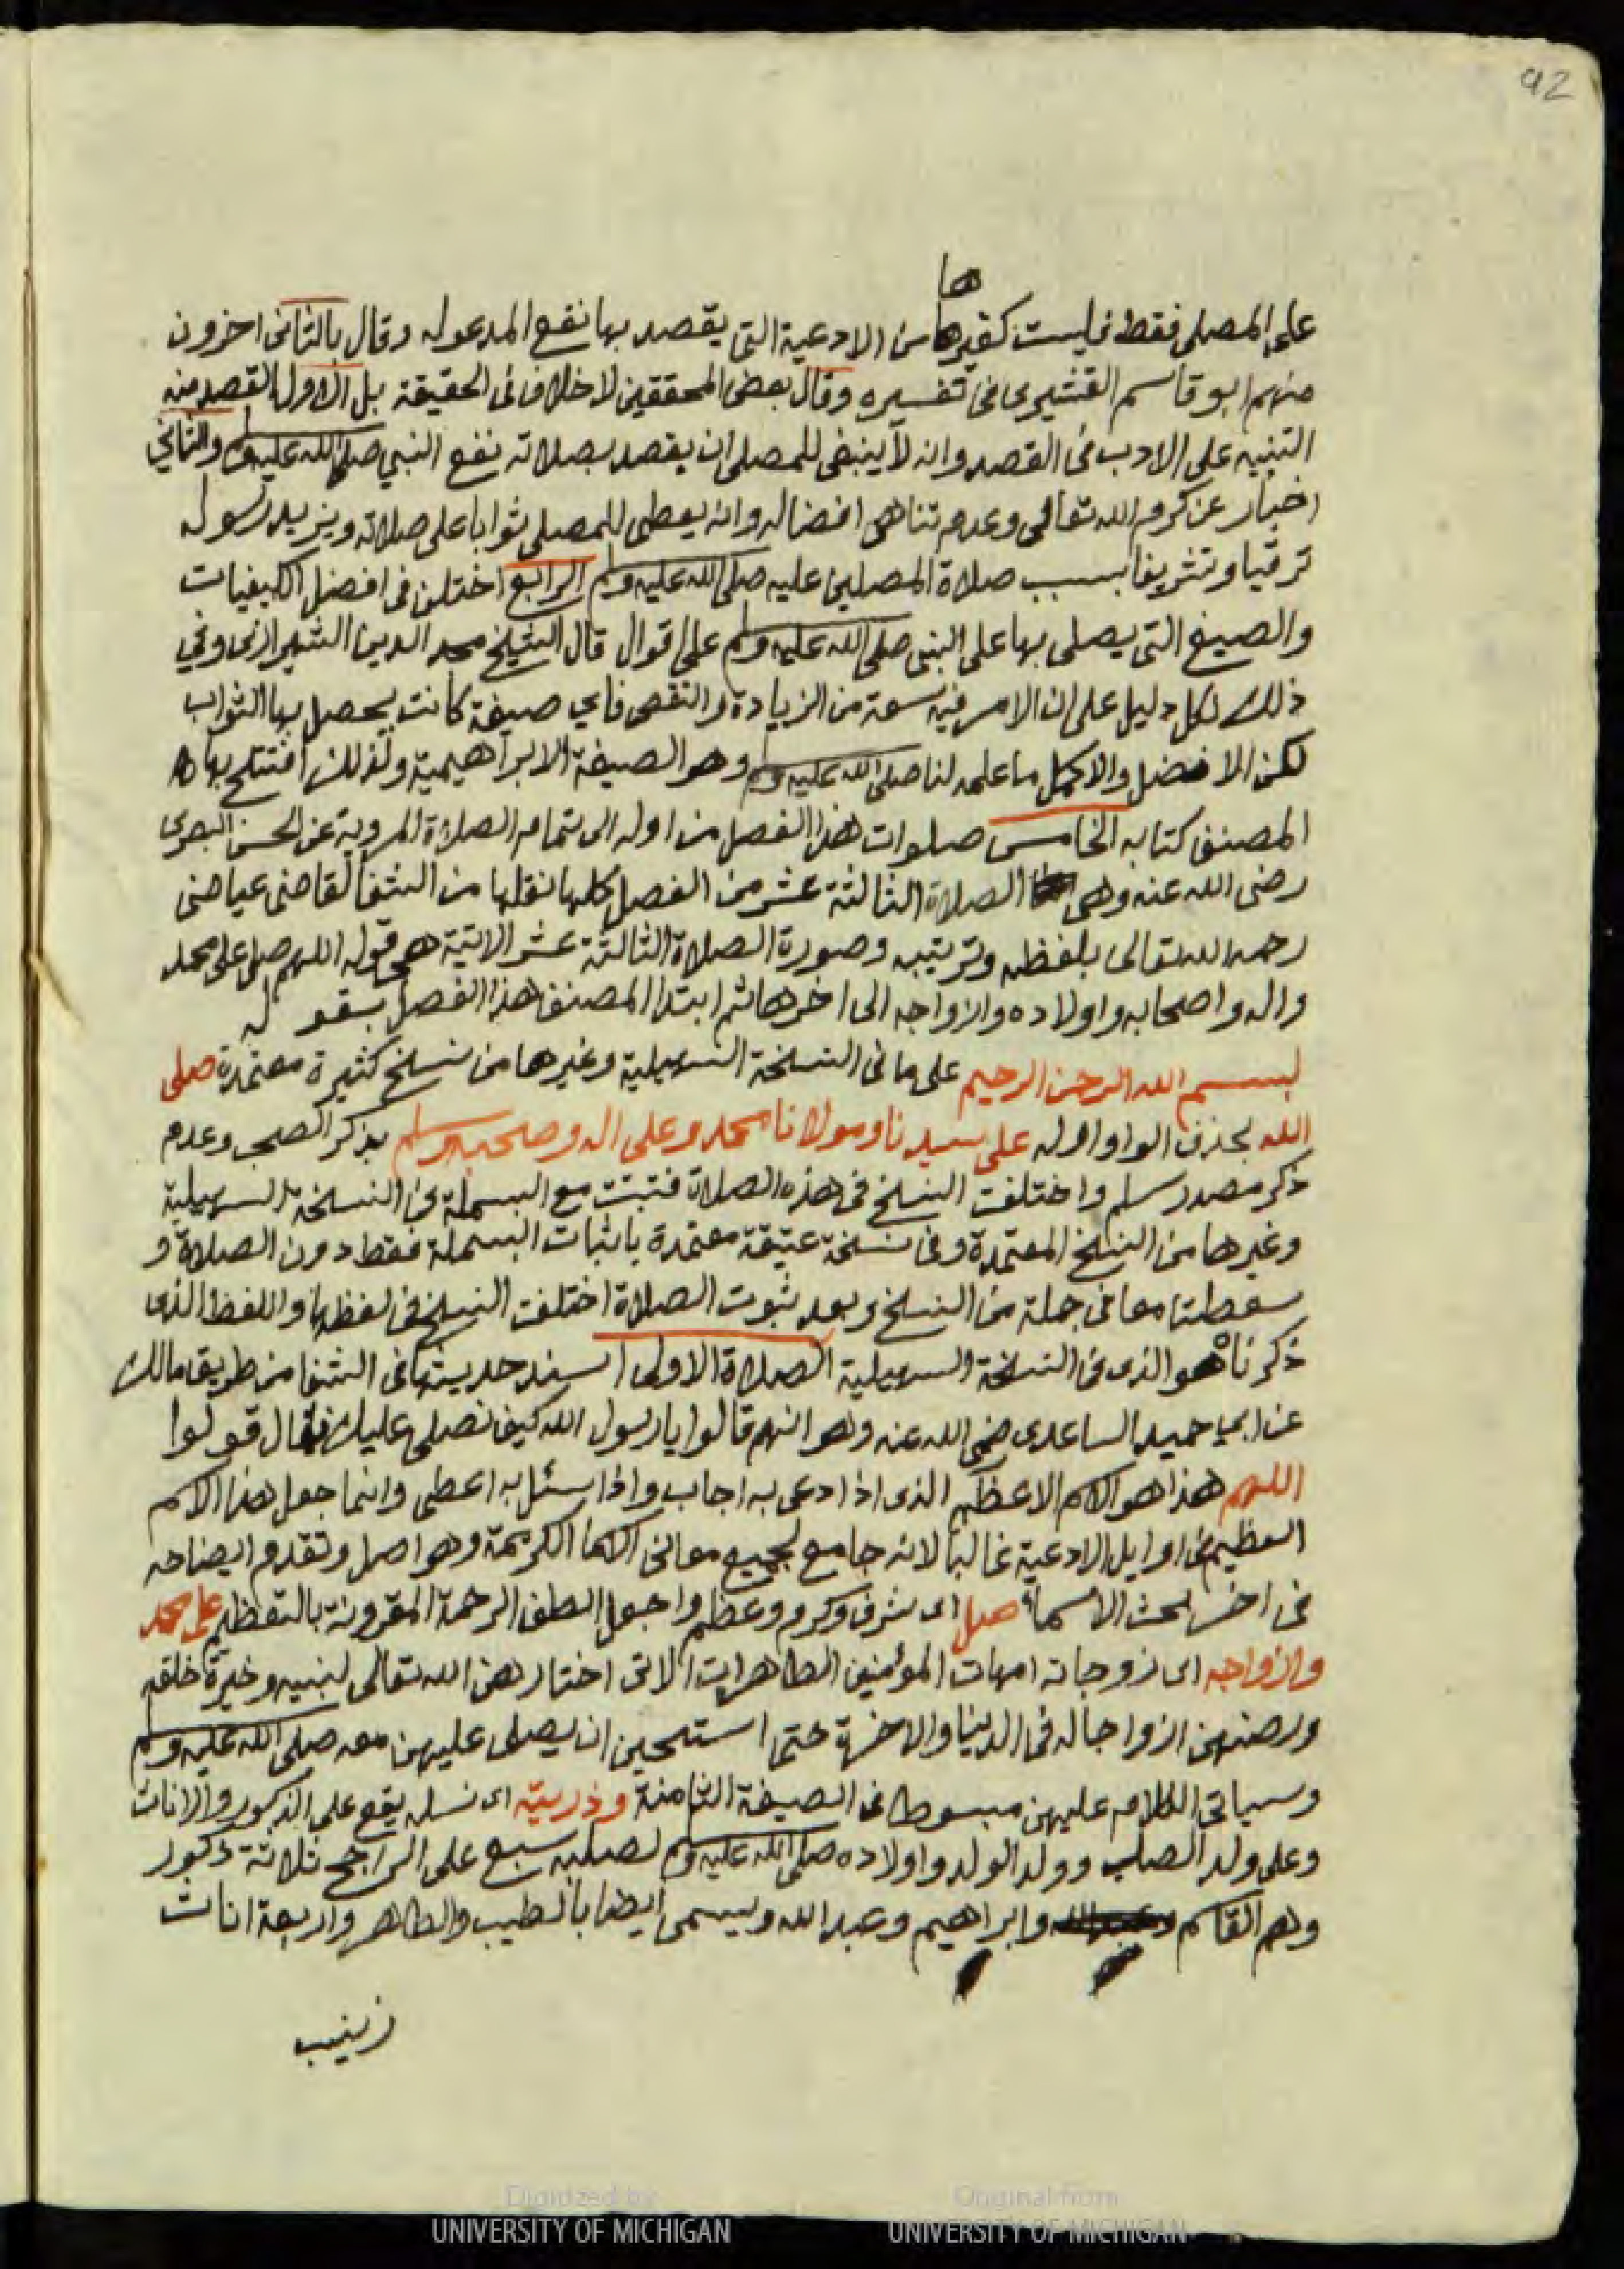 92
ها
على المصلى فقط فليست كغيرها من الادعية التى يقصد بها نفع المدعوله وقال بالثانى اخرون
منهم ابو قاسم القشيرى فى تفسيره وقال بعض المحققين لا خلاف فى الحقيقة بل الاول القصد منه
التنبيه على الادب فى القصد وانه لا ينبغى للمصلى ان يقصد بصلاته نفع النبي صلى الله عليه وسلم والثاني
اخبار عن كرم الله تعالى وعدم تناهى افضاله وانه يعطى للمصلى ثوابا على صلاته ويزيد رسوله
ترقيا وتشريفا بسبب صلاة المصلين عليه صلى الله عليه وسلم الرابع اختلف فى افضل الكيفيات
والصيغ التى يصلى بها على النبى صلى الله عليه وسلم على اقوال قال الشيخ مجد الدين الشيرازى وفي
ذلك لكل دليل على ان الامر فيه سعة من الزيادة والنقص فاي صيغة كانت يحصل بها الثواب
لكن الافضل والاكمل ما علمه لنا صلى الله عليه وسلم وهو الصيغة الابراهيمية ولذلك افتتح بها
المصنف كتابه الخامس صلوات هذا الفصل من اوله الى تمام الصلاة المروية عن الحسن البصرى
رضى الله عنه وهى الصلاة الثالثة عشر من الفصل كلها نقلها من الشفا لقاضى عياض
رحمه الله تعالى بلفظه وترتيبه وصورة الصلاة الثالثة عشر الاتية هى قوله اللهم صل على محمد
واله واصحابه واولاده وازواجه الى اخرها ثم ابتدا المصنف هذا الفصل بقوله
بسم الله الرحمن الرحيم على ما فى النسخة السهيلية وغيرها من نسخ كثيرة معتمدة صلى
الله بحذف الواو اوله على سيدنا ومولانا محمد وعلى اله وصحبه وسلم بذكر الصحب وعدم
ذكر مصدر سلم واختلفت النسخ فى هذه الصلاة فتبتت مع البسملة فى النسخة السهيلية
وغيرها من النسخ المعتمدة وفى نسخة عتيقة معتمدة باثبات البسملة فقط دون الصلاة و
سقطتا معا فى جملة من النسخ وبعد ثبوت الصلاة اختلفت النسخ فى لفظها واللفظ الذى
ذكرناه هو الذى فى النسخة السهيلية الصلاة الاولى اسند حديثها فى الشفا من طريق مالك
عن ابي حميد الساعدى رضى الله عنه وهو انهم قالوا يا رسول الله كيف نصلى عليك فقال قولوا
اللهم هذا هو الاسم الاعظم الذى اذا دعى به اجاب واذا سئل به اعطى وانما جعل هذا الاسم
العظيم فى اوايل الادعية غالبا لانه جامع لجميع معانى الاسما الكريمة وهو اصل وتقدم ايضاحه
فى اخر بحث الاسماء صل اى شرف وكرم وعظم واجعل الطف الرحمة المقرونة بالتعظيم على محمد
وازواجه اى زوجاته امهات المؤمنين الطاهرات الاتى اختارهن الله تعالى لنبيه وخيرة خلقه
ورضهن ازواجا له فى الدينا والاخرة حتى استحقين ان يصلى عليهن معه صلى الله عليه وسلم
وسياتى الكلام عليهن مبسوطا فى الصيغة الثامنة وذريته اى نسله يقع على الذكور والاناث
وعلى ولد الصلب وولد الولد واولاده صلى الله عليه وسلم لصلبه سبع على الراجح ثلاثة ذكور
وهم القاسم وابراهيم وعبد الله ويسمى ايضا بالطيب والطاهر واربعة اناث
زينب
Digitized by
UNIVERSITY OF MICHIGAN
Original from
UNIVERSITY OF MICHIGAN